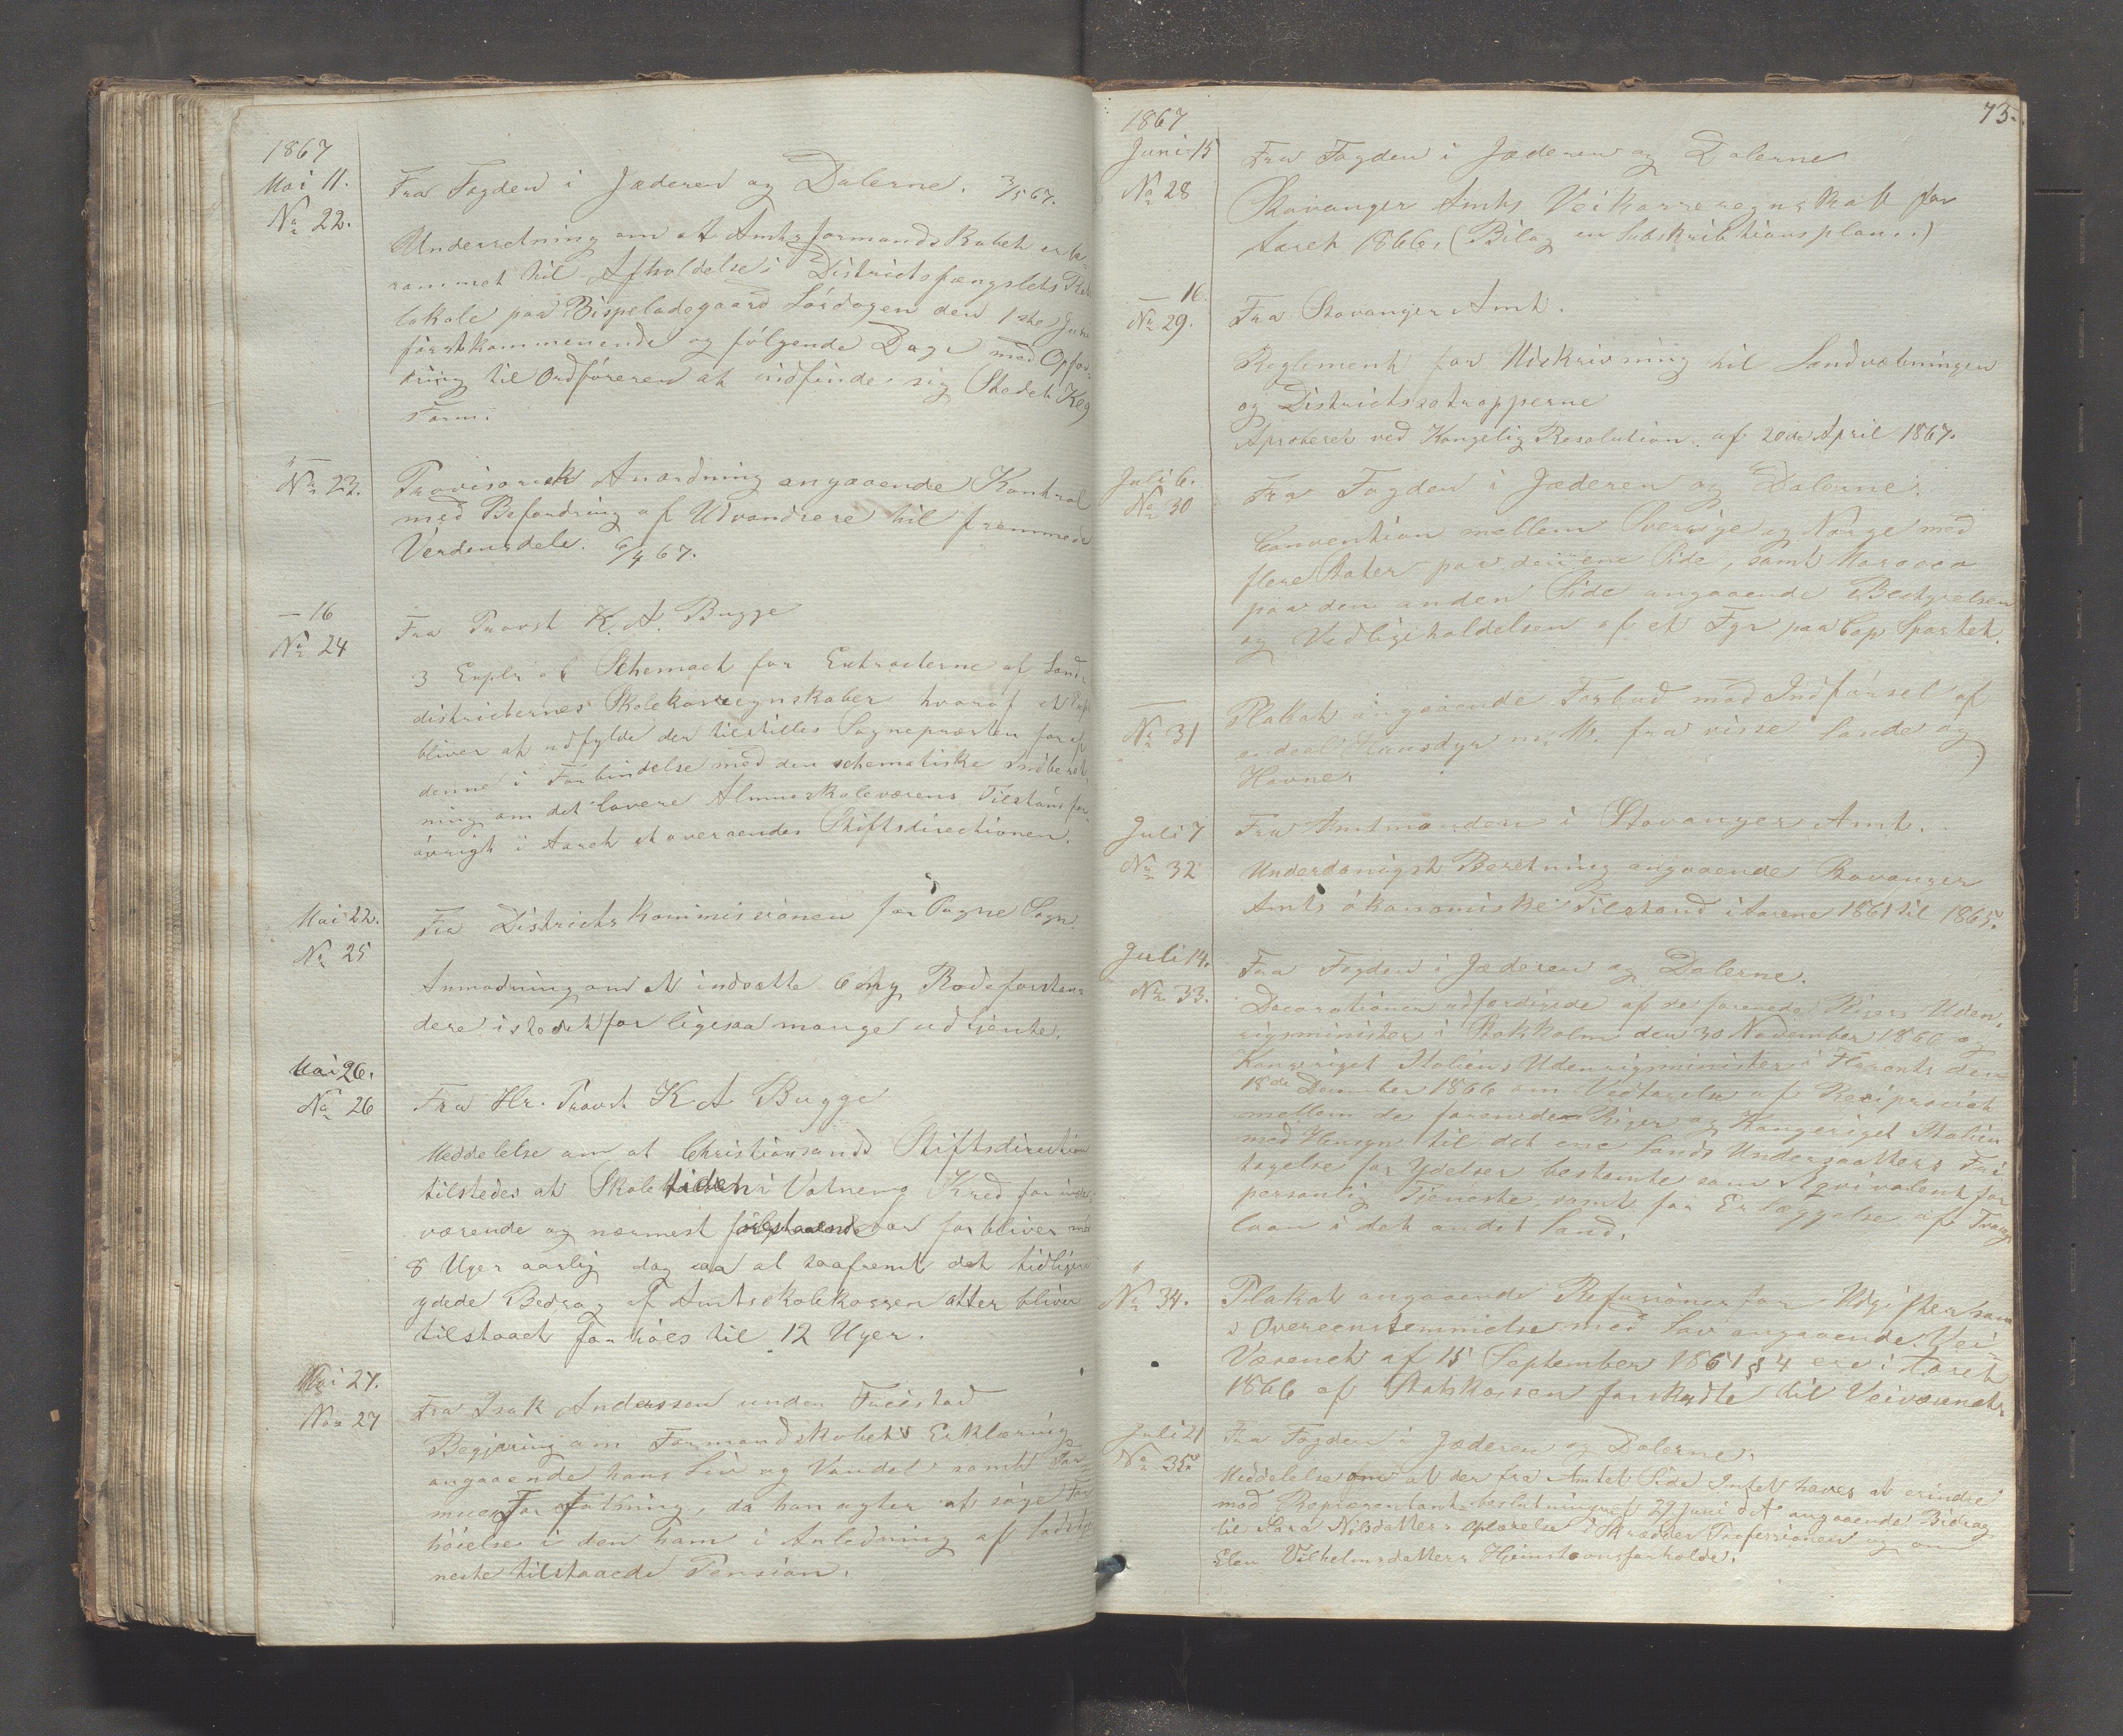 1867
Mai 11.
No 22.
Fra Fogden i Jæderen og Dalerne. 3/5 67.
Underretning om at Amtsformandskabet er be-
rammet til Afholdelse i Districtsfængslets
lokale paa Bispeladegaard Lördagen den 1ste Juni
förstkommenende og fölgende Dage med Opfor-
dring til Ordföreren at indfinde sig
" No 23.
Provisorisk Anordning angaaende Kontrol
med Befordring af Udvandrere til fremmede
Verdensdele. 6/4 67.
— 16
No 24
Fra Provst K. A. Bugge
3 Explr af Schemaet for Extracterne af Land-
districternes Skolekasseregnskaber hvoraf et Expl
bliver at udfylde der tilstilles Sognepræsten for af
denne i Forbindelse med den schematiske Indberet-
ning om det lavere Almueskolevæsens Tilstand for-
övrigt i Aaret at oversendes Stiftsdirectionen.
Mai 22.
No 25
Fra Districtskommissionen for Sogne Sogn.
Anmodning om at indsætte 6 ny Rodeforstan-
dere istedetfor ligesaa mange udtjente.
Mai 26.
No 26
Fra Hr. Provst K A Bugge
Meddelelse om at Christiansands Stiftsdirection
tilstedes at Skoletiden i Vatneng Kred for inde-
værende og nærmest aar forbliver med
8 Uger aarlig dog saa at saafremt det tidligere
ydede Bedrag af Amtsskolekassen atter bliver
tilstaaet forhöes til 12 Uger.
Mai 27.
No 27
Fra Isak Anderssen under
Begjæring om Formandskabets Erklæring
angaaende hans Liv og Vandel samt For-
mues Forfatning, da han agter at söge For-
höielse i den ham i Anledning af
neste tilstaaede Pension.
73.
1867
Juni 15
No 28
Fra Fogden i Jæderen og Dalerne
Stavanger Amts Veikasseregnskab for
Aaret 1866. (Bilag en Subskribtionsplan.)
— 16.
No 29.
Fra Stavanger Amt.
Reglement for Udskrivning til Landvæbningen
og Districtssatropperne
Aproberet ved Kongelig Resolution af 20de April 1867.
Juli 6.
No 30
Fra Fogden i Jæderen og Dalerne.
Convention mellem Sverrige og Norge med
flere Stater paa den ene Side, samt Marocco
paa den anden Side angaaende Bestyrelsen
og Vedligeholdelsen af et Fyr paa Cap Spartel.
— No 31
Plakat angaaende Forbud mod Indförsel af
endeel Huusdyr m. M. fra visse Lande og
Havne.
Juli 7
No 32
Fra Amtmanden i Stavanger Amt.
Underdanigst Beretning angaaende Stavanger
Amts ökonomiske Tilstand i Aarene 1861 til 1865.
Juli 14.
No 33.
Fra Fogden i Jæderen og Dalerne.
Decorationer udfærdigede af de forenede Rigers Uden-
rigsminister i Stokholm den 30 November 1866 og
Kongeriget Italiens Udenrigsminister i Florents den
18de December 1866 om Vedtagelse af Reciprocitet
mellem de forenede Riger og Kongeriget Italien
med Hensyn til det ene Lands Undersaatters Fri-
tagelse for Ydelser bestemte som Æqvivalent for
personlig Tjeneste samt for Erlæggelse af Tvangs
laan i det andet Land.
" No 34.
Plakat angaaende Refusioner for Udgifter som
i Overeenstemmelse med Lov angaaende Vei-
Væsenet af 15 September 1851 § 4 ere i Aaret
1866 af Statskassen forskudte til Veivæsenets
Juli 21
No 35
Fra Fogden i Jæderen og Dalerne.
Meddelelse om at der fra Amtet Side Intet haves at erindre
mod Repræsentantbeslutning af 29 Juni d A. angaaende Bidrag
til Sara Nilsdatters oplærelse i Skrædder Professionen og om
Elen Vilhelmsdatters Hjemstavnsforholde.